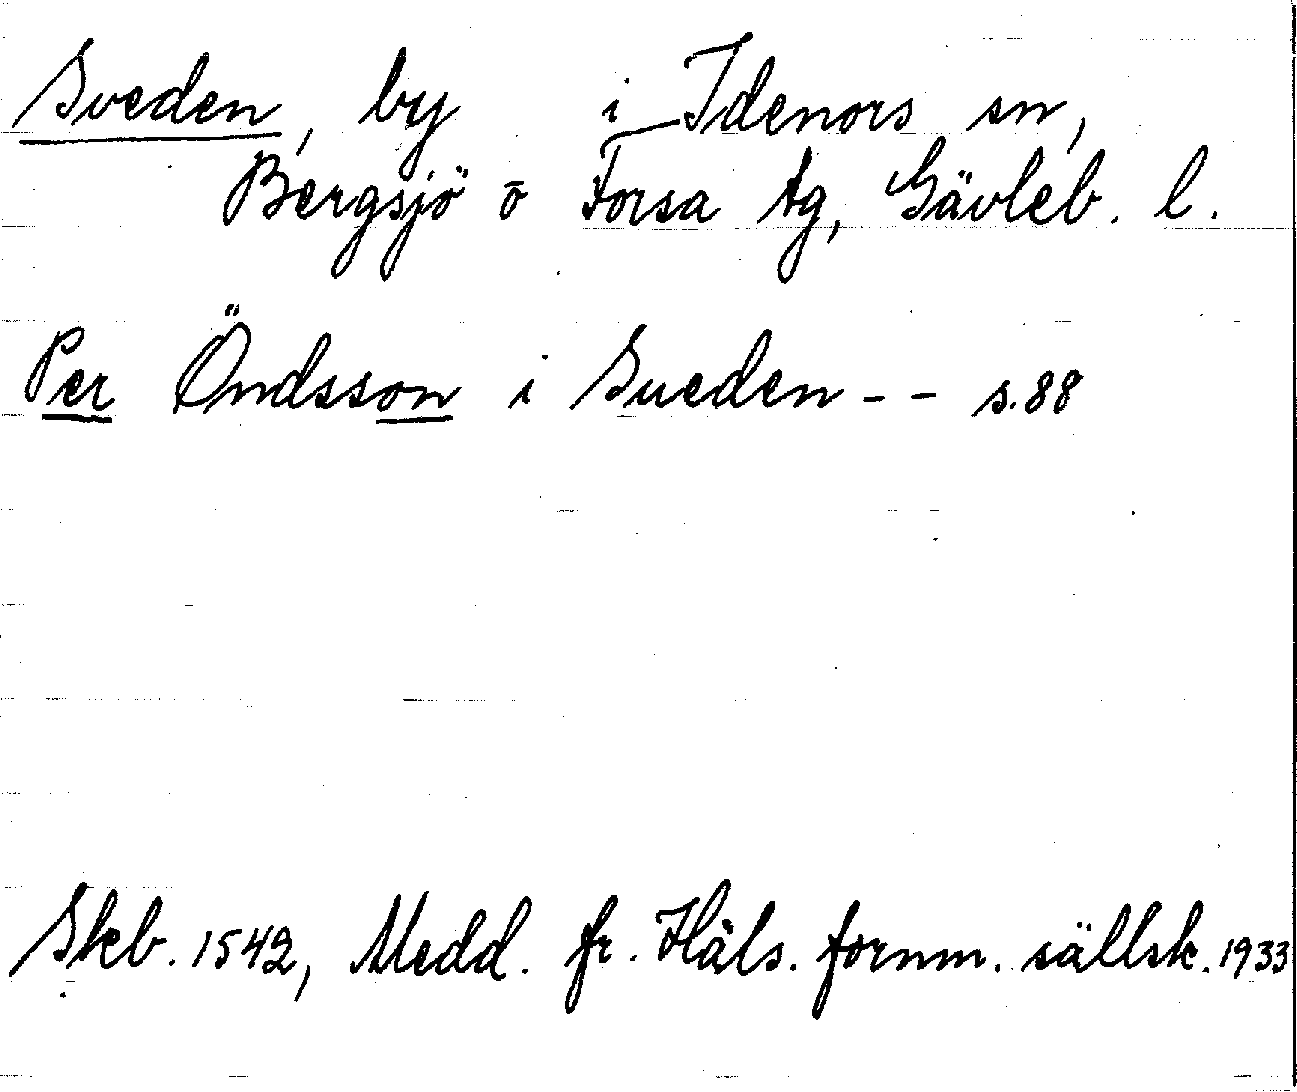 Sveden, by i Idenors sn,
Bergsjö o Forsa tg, Gävleb. l.
Per Öndsson i Sueden - - s. 88
Skb. 1542, Medd. fr. Häls. fornm. sällsk. 1933